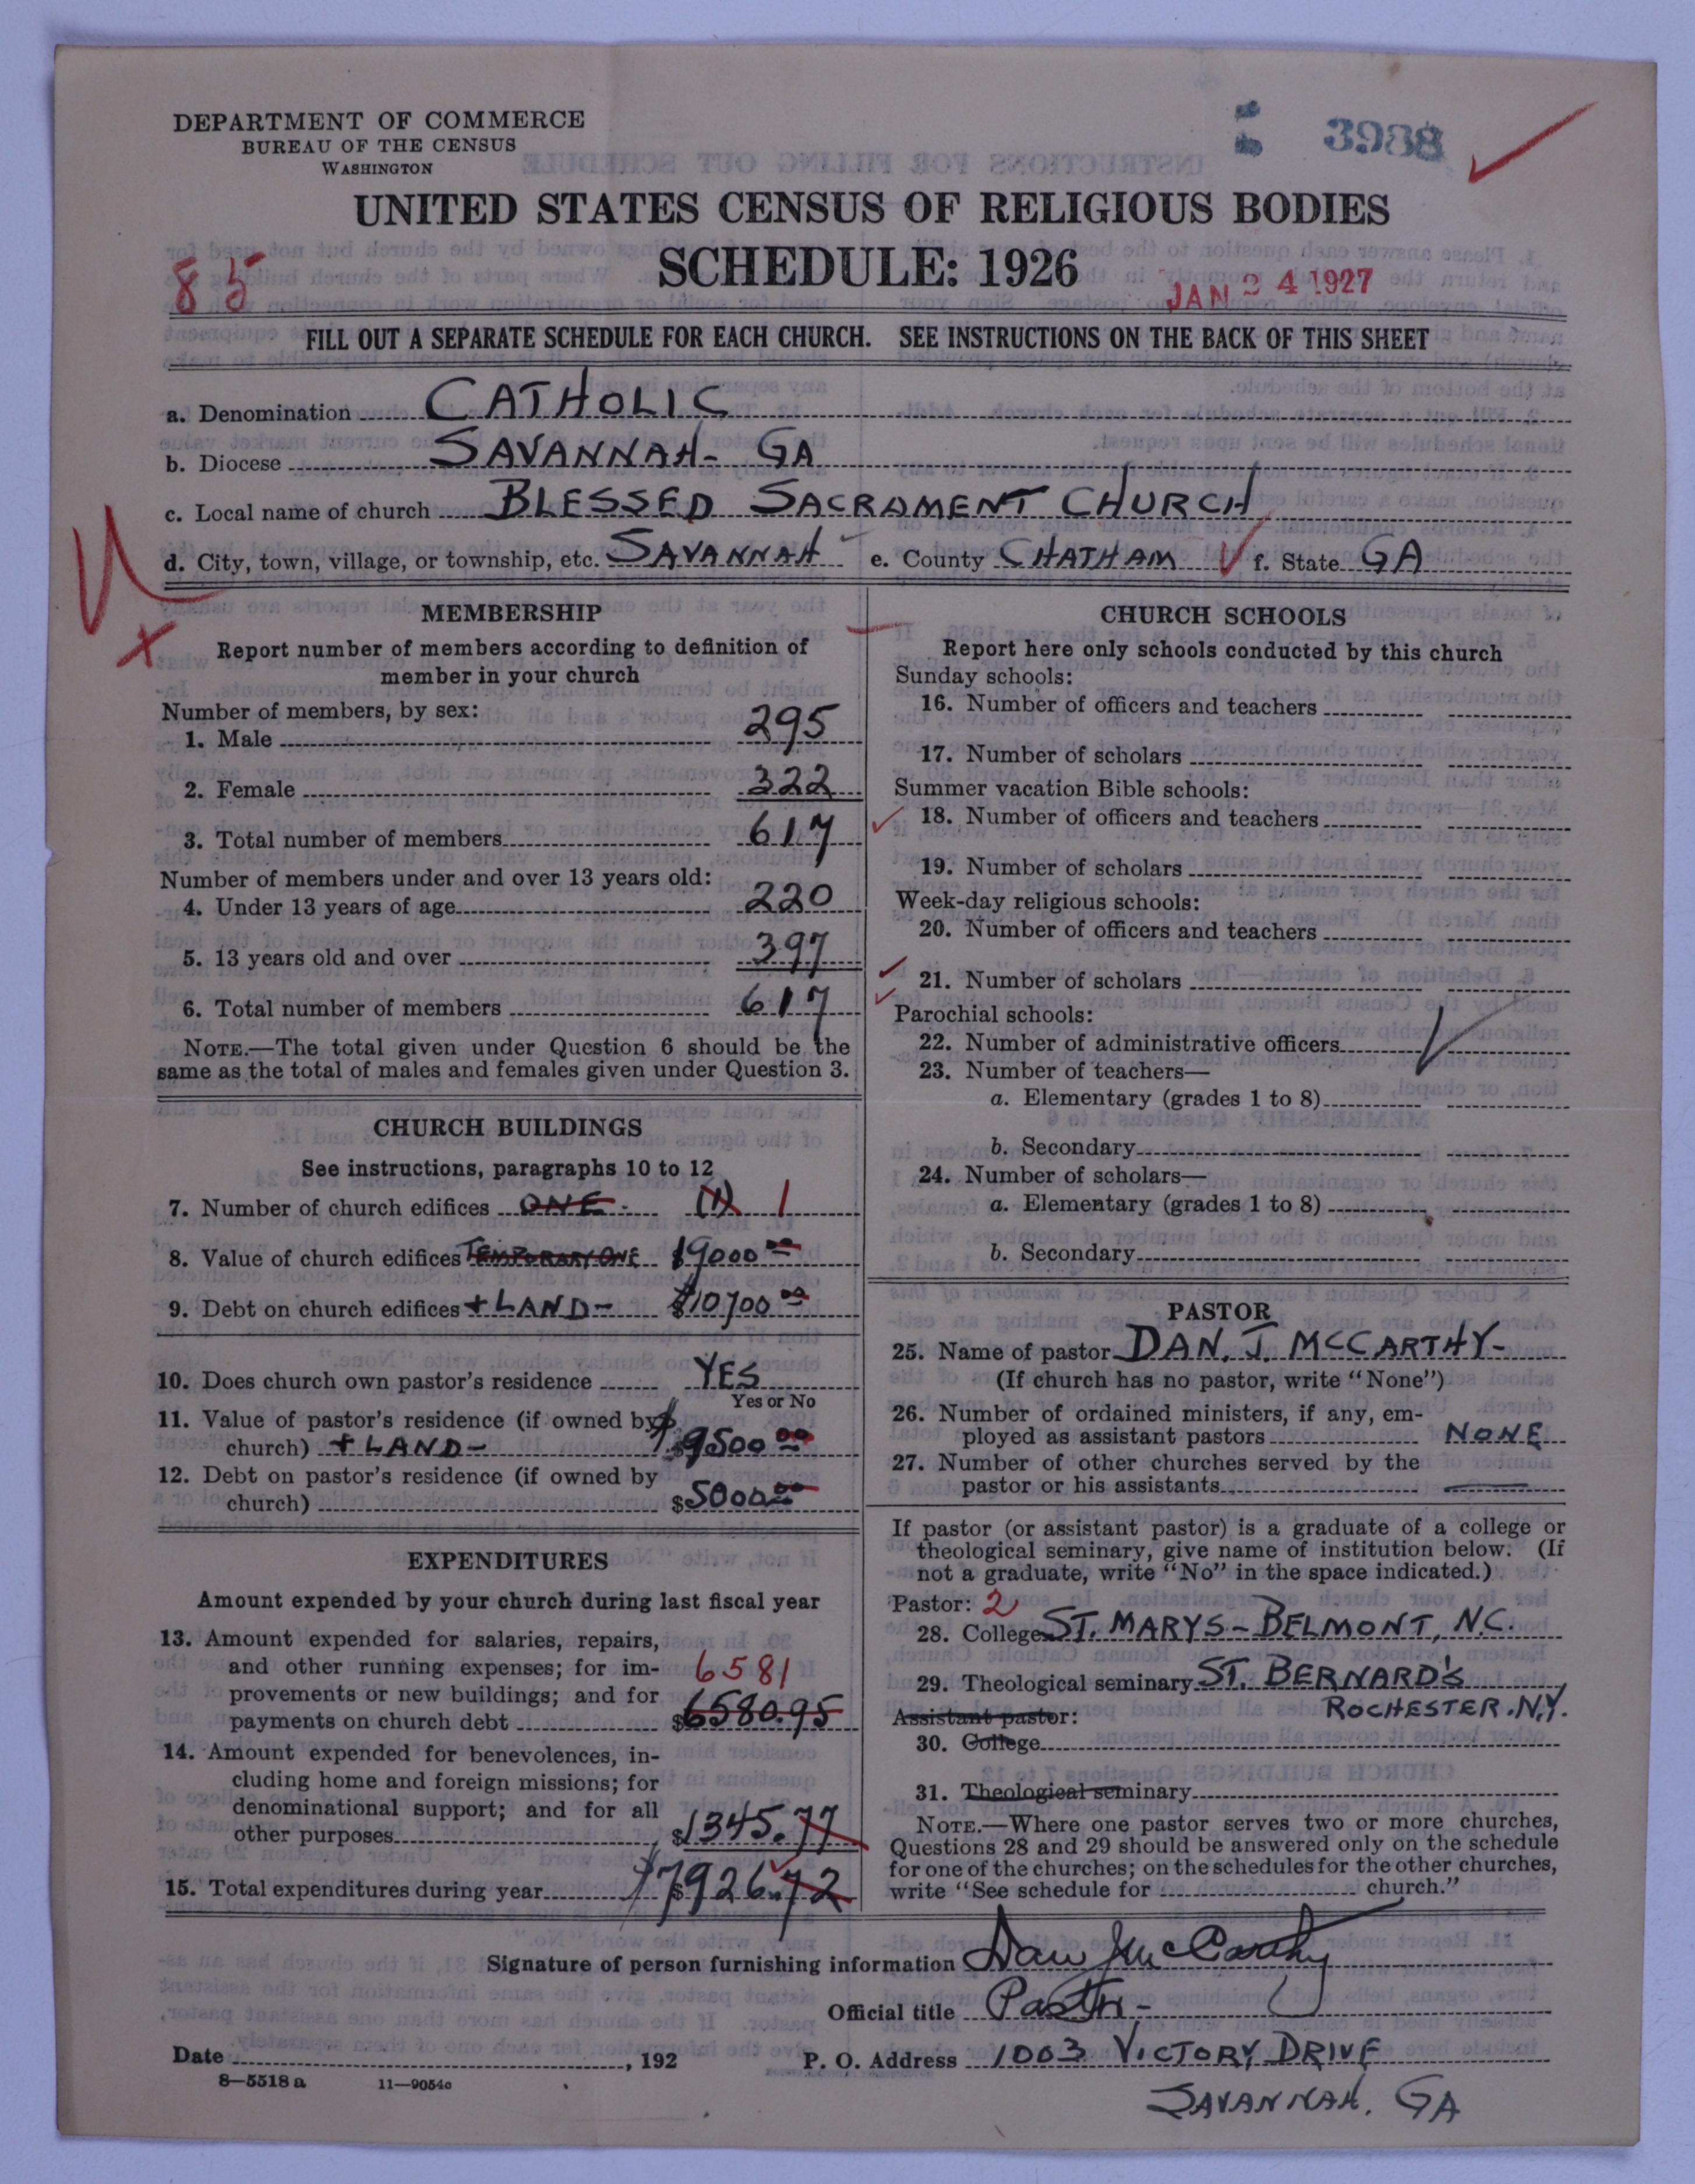 DEPARTMENT OF COMMERCE
BUREAU OF THE CENSUS
WASHINGTON
3988
UNITED STATES CENSUS OF RELIGIOUS BODIES
SCHEDULE: 1926
85
JAN 24 1927
FILL OUT A SEPARATE SCHEDULE FOR EACH CHURCH. SEE INSTRUCTIONS ON THE BACK OF THIS SHEET
a. Denomination CATHOLIC
b. Diocese SAVANNAH- GA
c. Local name of church BLESSED SACRAMENT CHURCH
d. City, town, village, or township, etc. SAVANNAH e. County CHATHAM f. State GA
MEMBERSHIP
Report number of members according to definition of
member in your church
Number of members, by sex:
1. Male 295
2. Female 322
3. Total number of members 617
Number of members under and over 13 years old:
4. Under 13 years of age 220
5. 13 years old and over 397
6. Total number of members 617
NOTE.—The total given under Question 6 should be the
same as the total of males and females given under Question 3.
CHURCH BUILDINGS
See instructions, paragraphs 10 to 12
7. Number of church edifices ONE- (1) 1
8. Value of church edifices TEMPORARY ONE $9000.00
9. Debt on church edifices + LAND- $10700.00
10. Does church own pastor's residence YES
Yes or No
11. Value of pastor's residence (if owned by
church) + LAND- $9500.00
12. Debt on pastor's residence (if owned by
church) $5000.00
EXPENDITURES
Amount expended by your church during last fiscal year
13. Amount expended for salaries, repairs,
and other running expenses; for im- 6581
provements or new buildings; and for
payments on church debt $6580.95
14. Amount expended for benevolences, in-
cluding home and foreign missions; for
denominational support; and for all
other purposes $1345.77
15. Total expenditures during year $7926.72
CHURCH SCHOOLS
Report here only schools conducted by this church
Sunday schools:
16. Number of officers and teachers
17. Number of scholars
Summer vacation Bible schools:
18. Number of officers and teachers
19. Number of scholars
Week-day religious schools:
20. Number of officers and teachers
21. Number of scholars
Parochial schools:
22. Number of administrative officers
23. Number of teachers—
a. Elementary (grades 1 to 8)
b. Secondary
24. Number of scholars—
a. Elementary (grades 1 to 8)
b. Secondary
PASTOR
25. Name of pastor DAN. J. MCCARTHY-
(If church has no pastor, write "None")
26. Number of ordained ministers, if any, em-
ployed as assistant pastors NONE
27. Number of other churches served by the
pastor or his assistants
If pastor (or assistant pastor) is a graduate of a college or
theological seminary, give name of institution below. (If
not a graduate, write "No" in the space indicated.)
Pastor: 2
28. College ST. MARYS- BELMONT, N.C.
29. Theological seminary ST. BERNARD'S
ROCHESTER. N.Y.
Assistant pastor:
30. College
31. Theological seminary
NOTE.—Where one pastor serves two or more churches,
Questions 28 and 29 should be answered only on the schedule
for one of the churches; on the schedules for the other churches,
write "See schedule for church."
Signature of person furnishing information Dan J McCarthy
Official title Pastor-
Date , 192 P. O. Address 1003 VICTORY DRIVE
8—5518a 11—9054c
SAVANNAH. GA